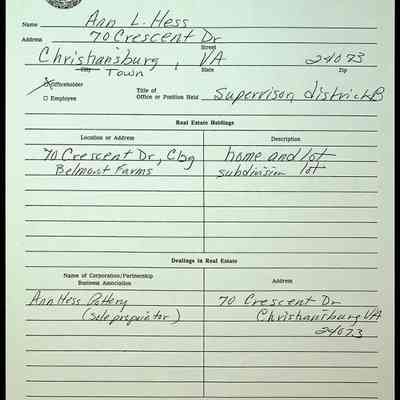 Name Ann L. Hess
Address 70 Crescent Dr
Street
Christiansburg, VA 24073
City Town State Zip
Officeholder
Employee
Title of
Office or Position Held Supervison, district B
Real Estate Holdings
Location or Address Description
70 Crescent Dr, Cbg home and lot
Belmont Farms subdivision lot
Dealings in Real Estate
Name of Corporation/Partnership
Business Association Address
Ann Hess Pottery 70 Crescent Dr
(sole propriator) Christiansburg VA
24073